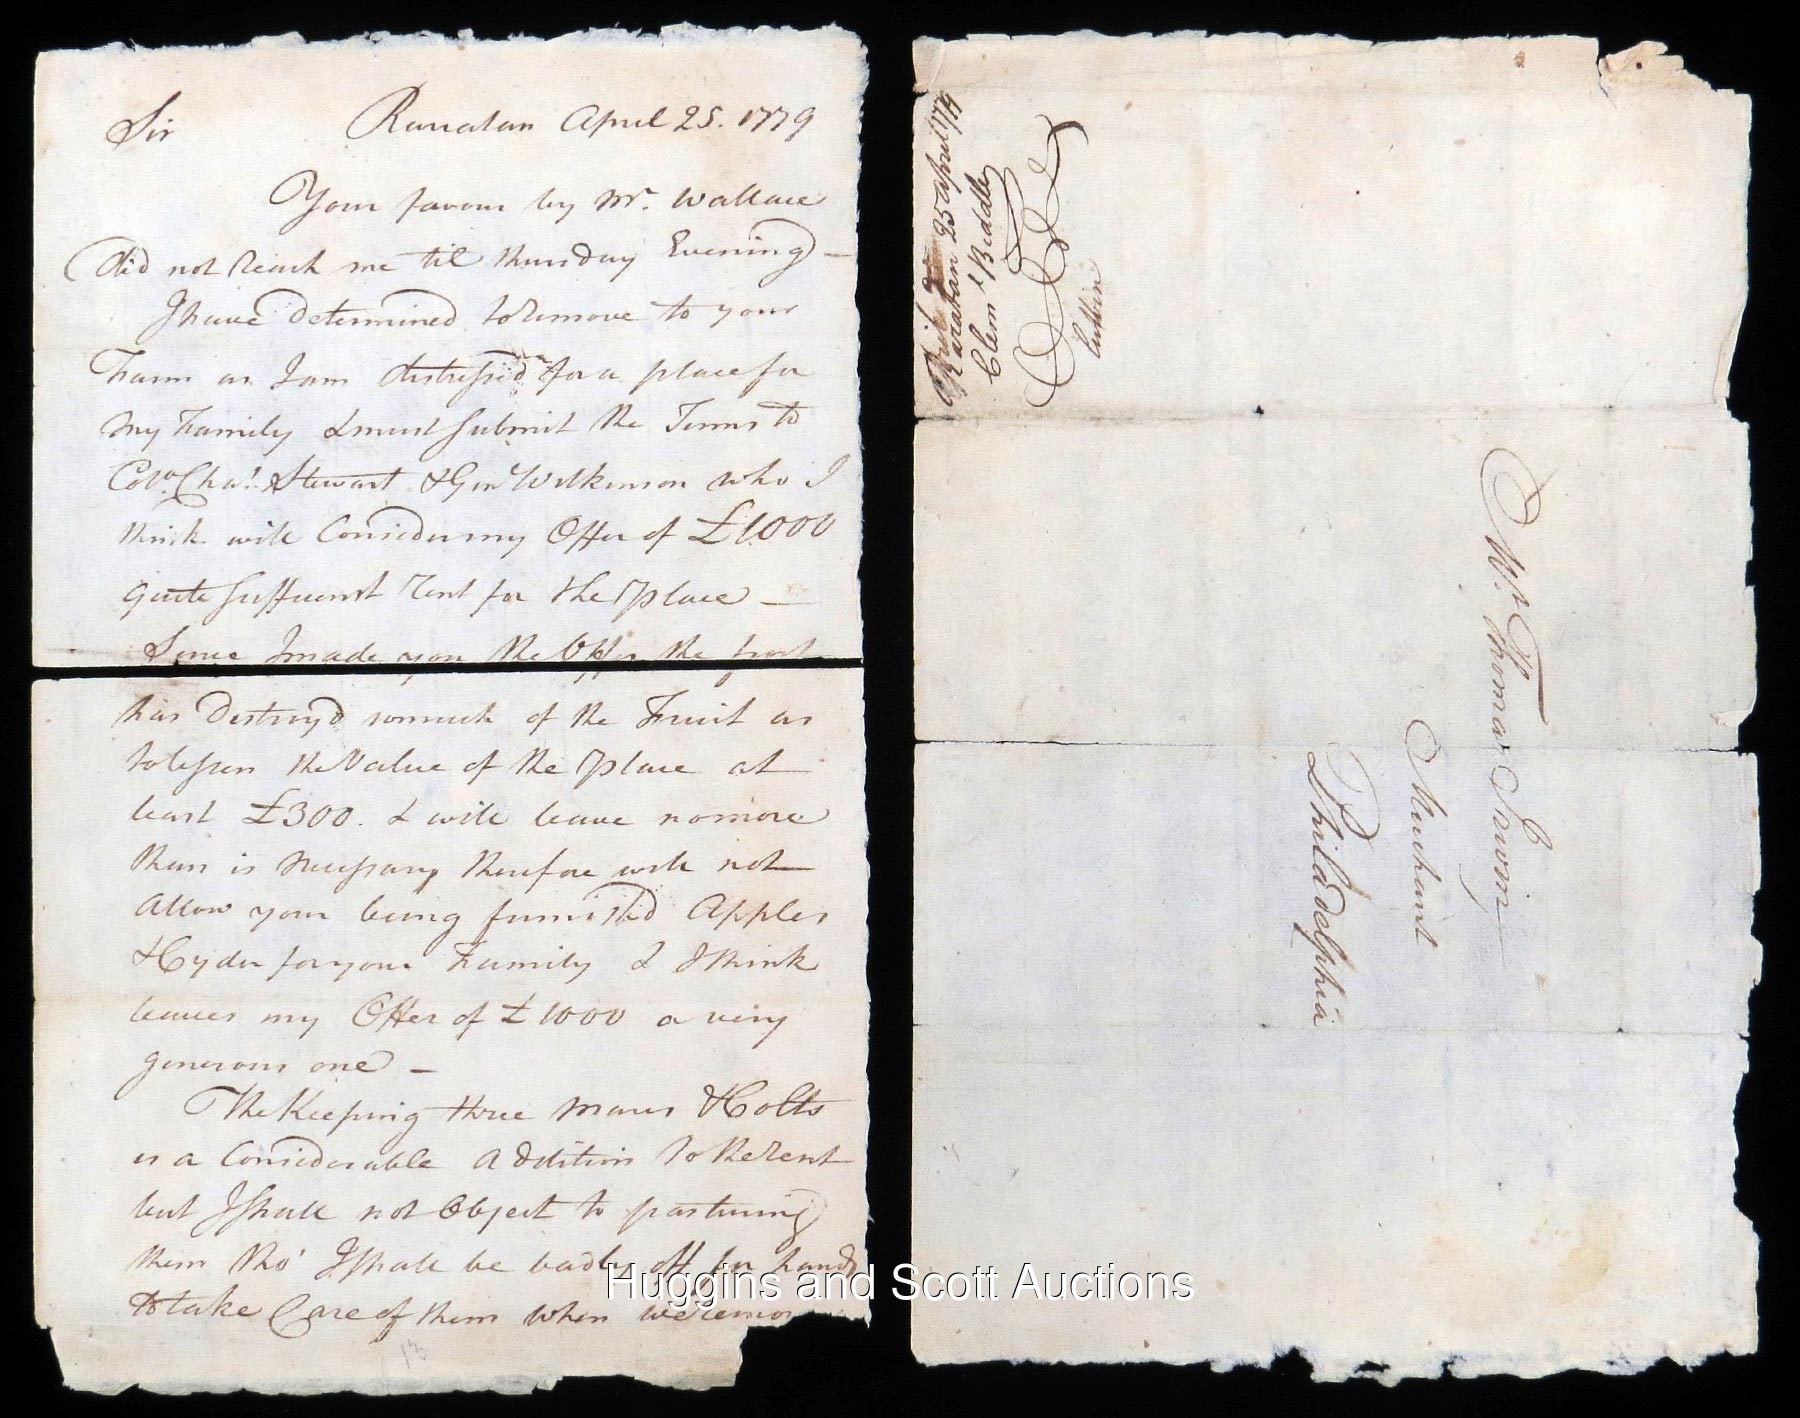 Sir Raratan April 25. 1779
Your favour by Mr. Wallace
did not Reach me til thursday Evening —
I have determined to Remove to your
Farm as I am distressed for a place for
my Family & must Submit the Terms to
Colo. Chas. Stewart & Genl Wilkinson who I
think will Consider my Offer of £1000
quite Sufficient Rent for the place —
Since I made you the Offer the frost
has Destroyd so much of the Fruit as
to lessen the Value of the place at
least £300. & will leave no more
than is necessary therefore will not
Allow your being furnished Apples
& Cyder for your Family & I think
leaves my Offer of £1000 a very
generous one —
The Keeping three mares & Colts
is a Considerable Addition to the Rent
but I shall not Object to pasturing
them tho' I shall be badly off for hands
to take Care of them when we remo
13
Raratan 25 april 1779
Clemt Biddle
Mr. Thomas Irwin
Merchant
Philadelphia
Huggins and Scott Auctions